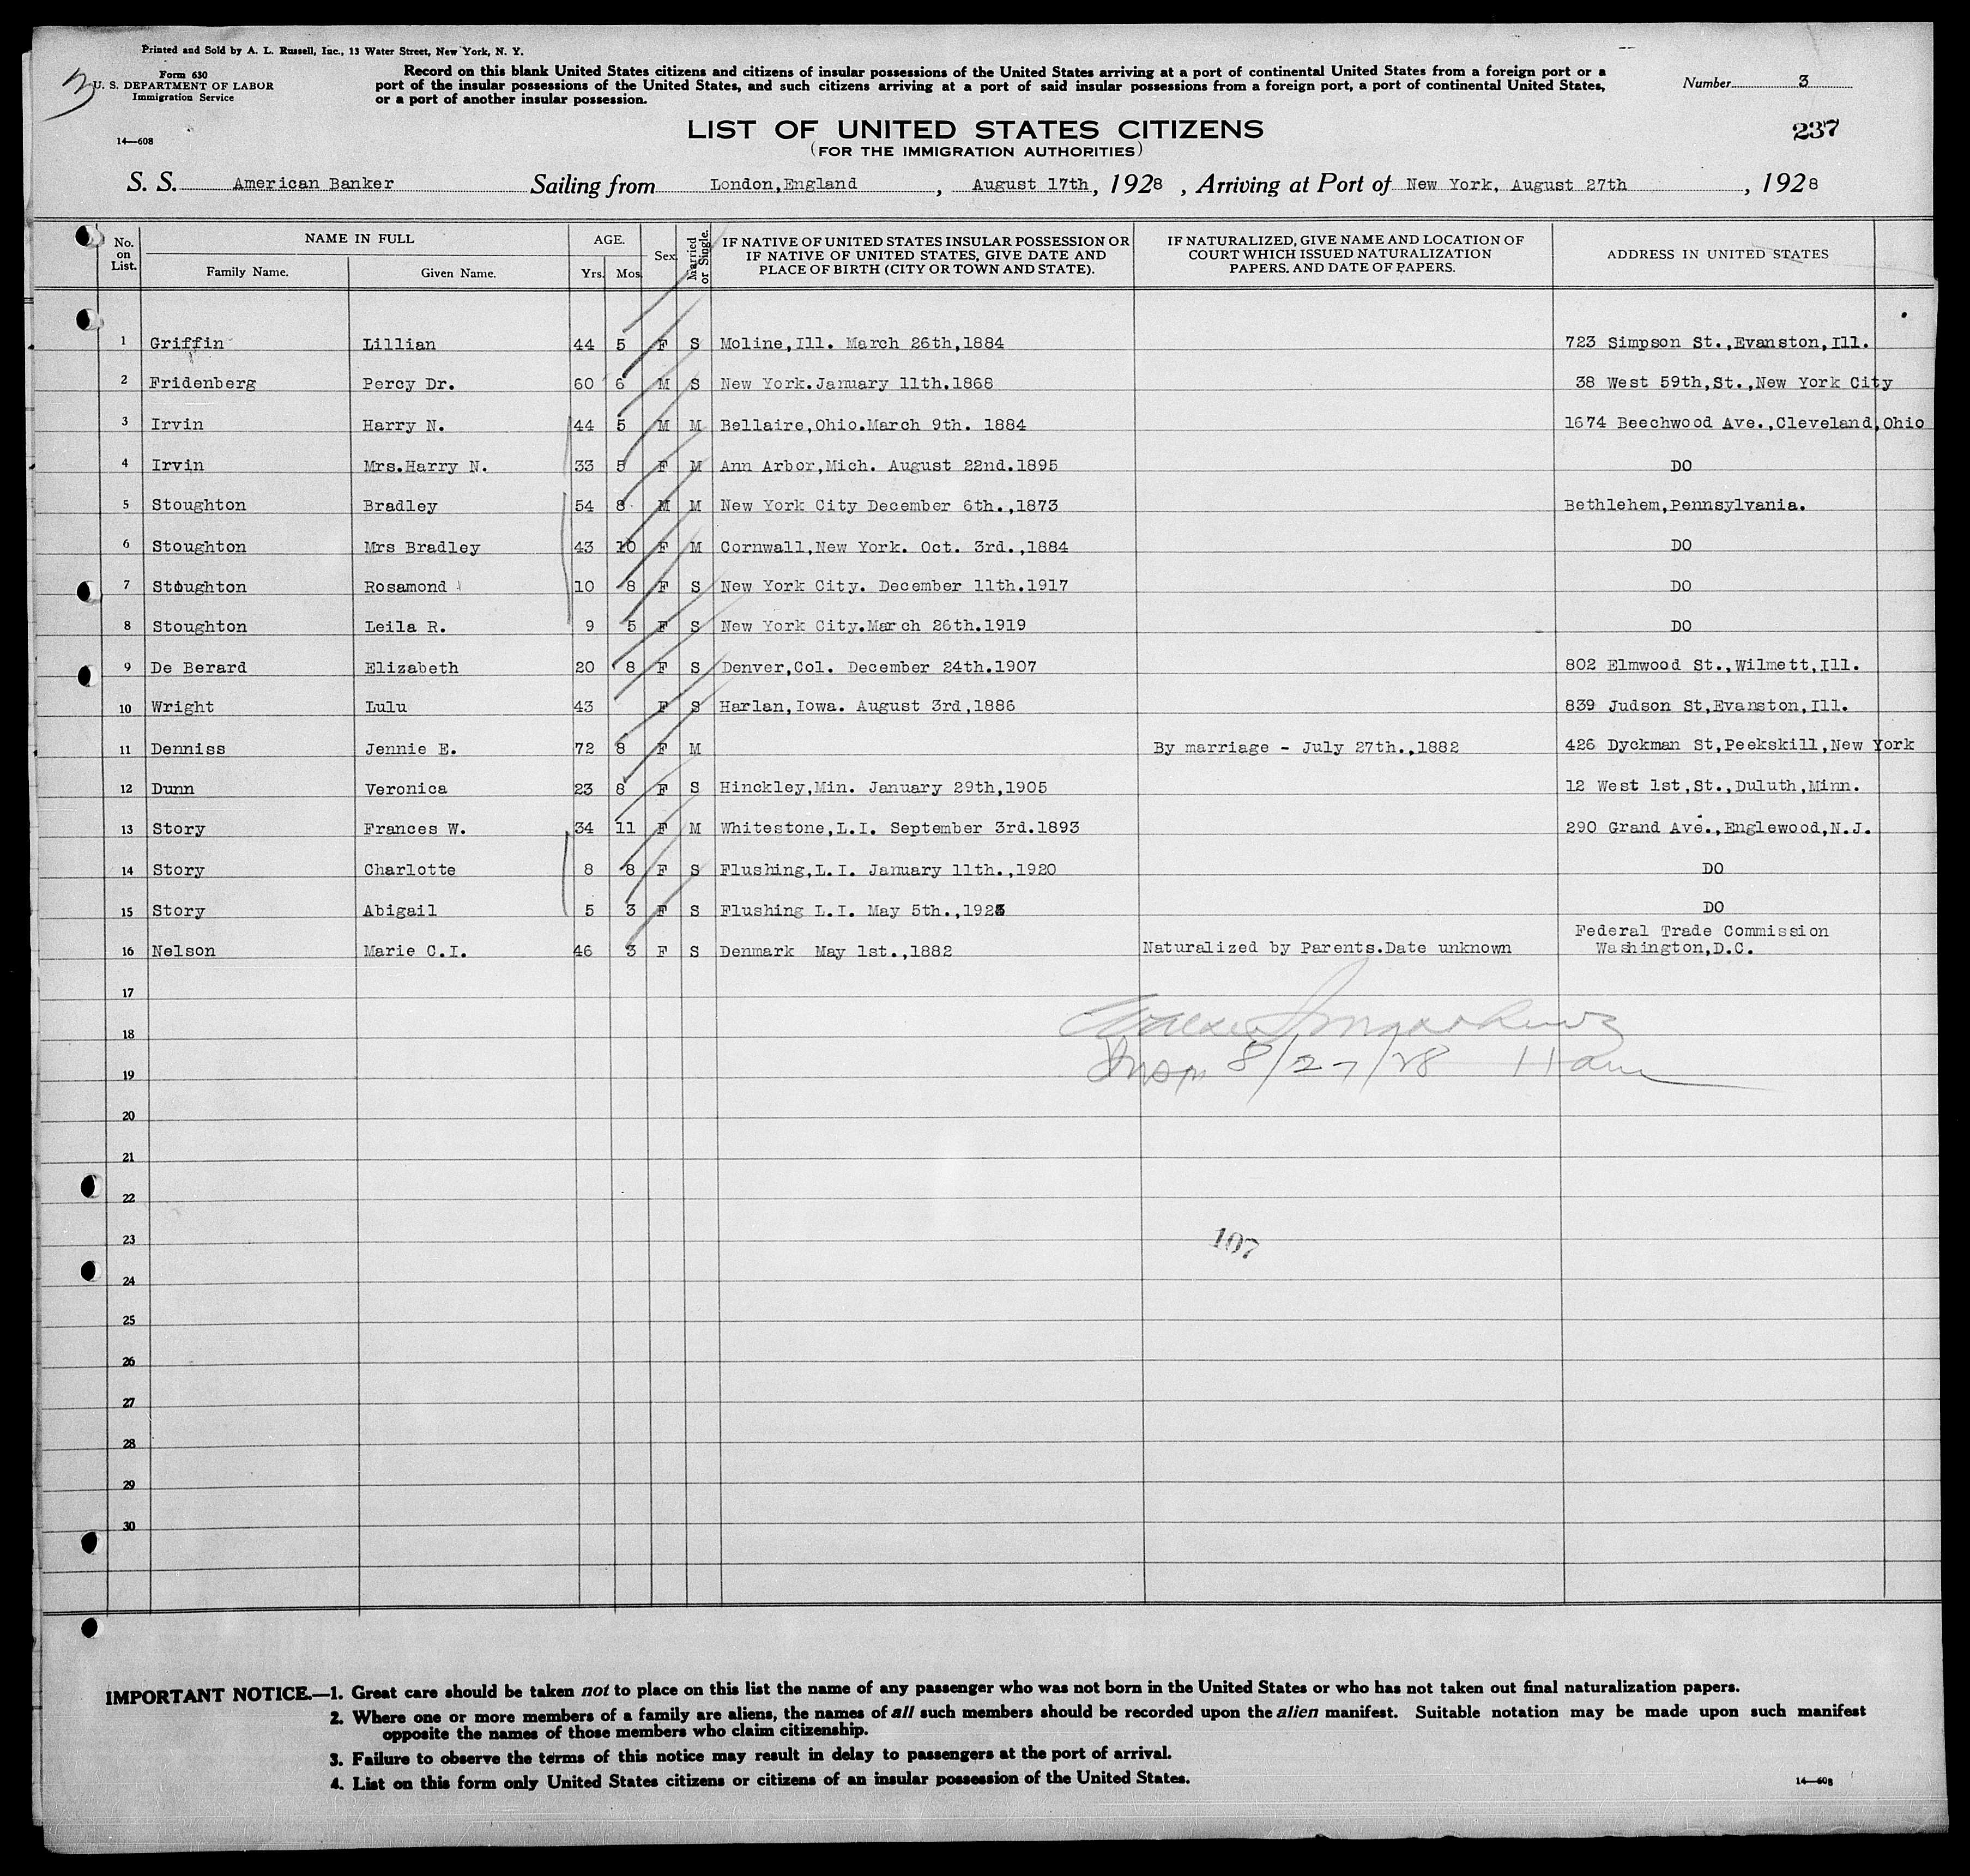 Printed and Sold by A. L. Russell, Inc., 13 Water Street, New York, N. Y.
3
Form 630
U. S. DEPARTMENT OF LABOR
Immigration Service
14—608
Record on this blank United States citizens and citizens of insular possessions of the United States arriving at a port of continental United States from a foreign port or a
port of the insular possessions of the United States, and such citizens arriving at a port of said insular possessions from a foreign port, a port of continental United States,
or a port of another insular possession.
Number 3
LIST OF UNITED STATES CITIZENS
(FOR THE IMMIGRATION AUTHORITIES)
237
S. S. American Banker Sailing from London,England , August 17th, 1928 , Arriving at Port of New York, August 27th , 1928
No. on List. NAME IN FULL Family Name. Given Name. AGE. Yrs. Mos. Sex Married or Single. IF NATIVE OF UNITED STATES INSULAR POSSESSION OR IF NATIVE OF UNITED STATES, GIVE DATE AND PLACE OF BIRTH (CITY OR TOWN AND STATE). IF NATURALIZED, GIVE NAME AND LOCATION OF COURT WHICH ISSUED NATURALIZATION PAPERS, AND DATE OF PAPERS. ADDRESS IN UNITED STATES
1 Griffin Lillian 44 5 F S Moline,Ill. March 26th,1884 723 Simpson St.,Evanston,Ill.
2 Fridenberg Percy Dr. 60 6 M S New York.January 11th.1868 38 West 59th,St.,New York City
3 Irvin Harry N. 44 5 M M Bellaire,Ohio.March 9th. 1884 1674 Beechwood Ave.,Cleveland,Ohio
4 Irvin Mrs.Harry N. 33 5 F M Ann Arbor,Mich. August 22nd.1895 DO
5 Stoughton Bradley 54 8 M M New York City December 6th.,1873 Bethlehem,Pennsylvania.
6 Stoughton Mrs Bradley 43 10 F M Cornwall,New York. Oct. 3rd.,1884 DO
7 Stoughton Rosamond 10 8 F S New York City. December 11th.1917 DO
8 Stoughton Leila R. 9 5 F S New York City.March 26th.1919 DO
9 De Berard Elizabeth 20 8 F S Denver,Col. December 24th.1907 802 Elmwood St.,Wilmett,Ill.
10 Wright Lulu 43 F S Harlan,Iowa. August 3rd,1886 839 Judson St,Evanston,Ill.
11 Denniss Jennie E. 72 8 F M By marriage - July 27th.,1882 426 Dyckman St,Peekskill,New York
12 Dunn Veronica 23 8 F S Hinckley,Min. January 29th,1905 12 West 1st,St.,Duluth,Minn.
13 Story Frances W. 34 11 F M Whitestone,L.I. September 3rd.1893 290 Grand Ave.,Englewood,N.J.
14 Story Charlotte 8 8 F S Flushing,L.I. January 11th.,1920 DO
15 Story Abigail 5 3 F S Flushing L.I. May 5th.,1923 DO
16 Nelson Marie C.I. 46 3 F S Denmark May 1st.,1882 Naturalized by Parents.Date unknown Federal Trade Commission Washington,D.C.
17
18
19 Insp 8/27/28 11 am
20
21
22
23 107
24
25
26
27
28
29
30
IMPORTANT NOTICE.—1. Great care should be taken not to place on this list the name of any passenger who was not born in the United States or who has not taken out final naturalization papers.
2. Where one or more members of a family are aliens, the names of all such members should be recorded upon the alien manifest. Suitable notation may be made upon such manifest
opposite the names of those members who claim citizenship.
3. Failure to observe the terms of this notice may result in delay to passengers at the port of arrival.
4. List on this form only United States citizens or citizens of an insular possession of the United States.
14—608